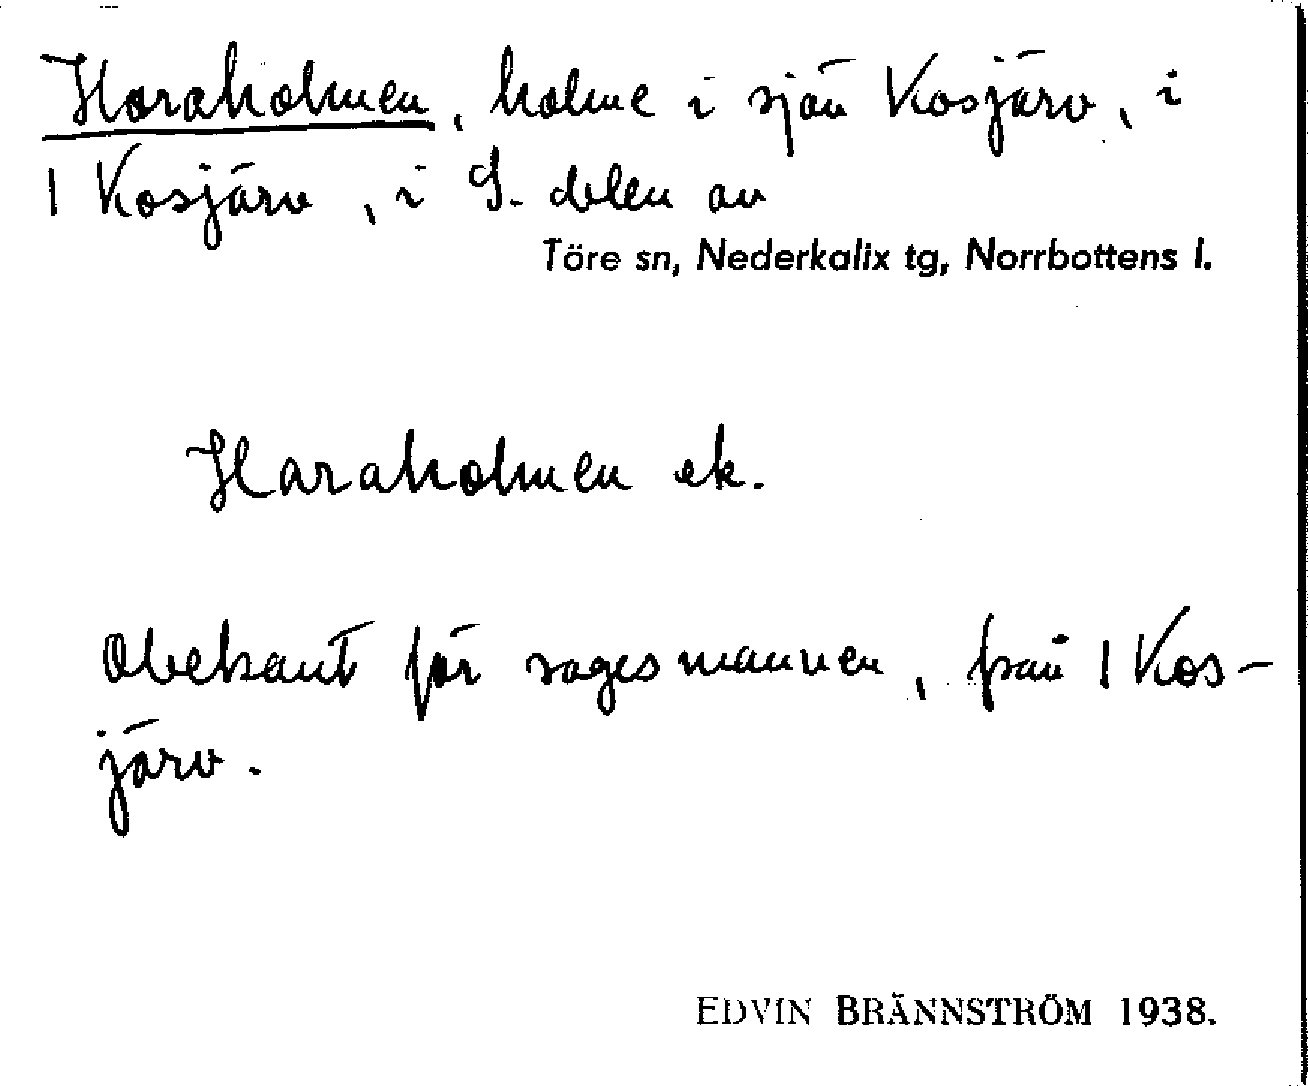 Haraholmen, holme i sjön Kosjärv, i
1 Kosjärv, i S. delen av
Töre sn, Nederkalix tg, Norrbottens l.
Haraholmen ek.
Obekant för sagesmannen, från 1 Kos-
järv.
EDVIN BRÄNNSTRÖM 1938.